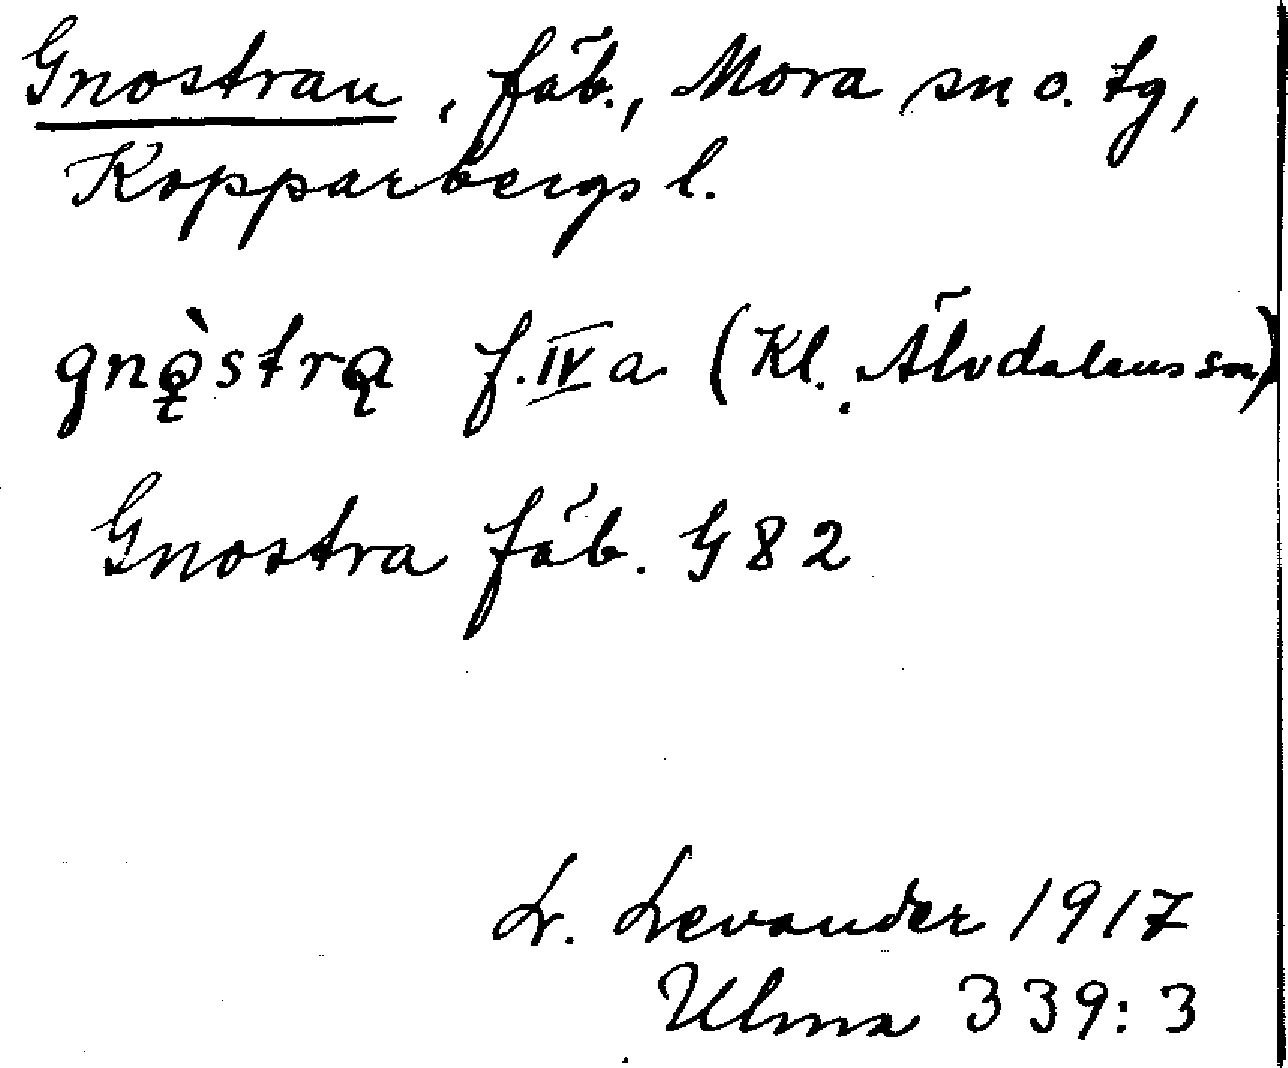 Gnostran, fäb., Mora sn o. tg,
Kopparbergs l.
gnǫ̀strą f. IV a (Kl. Älvdalens sn)
Gnostra fäb. G 82
L. Levander 1917
Ulma 339:3